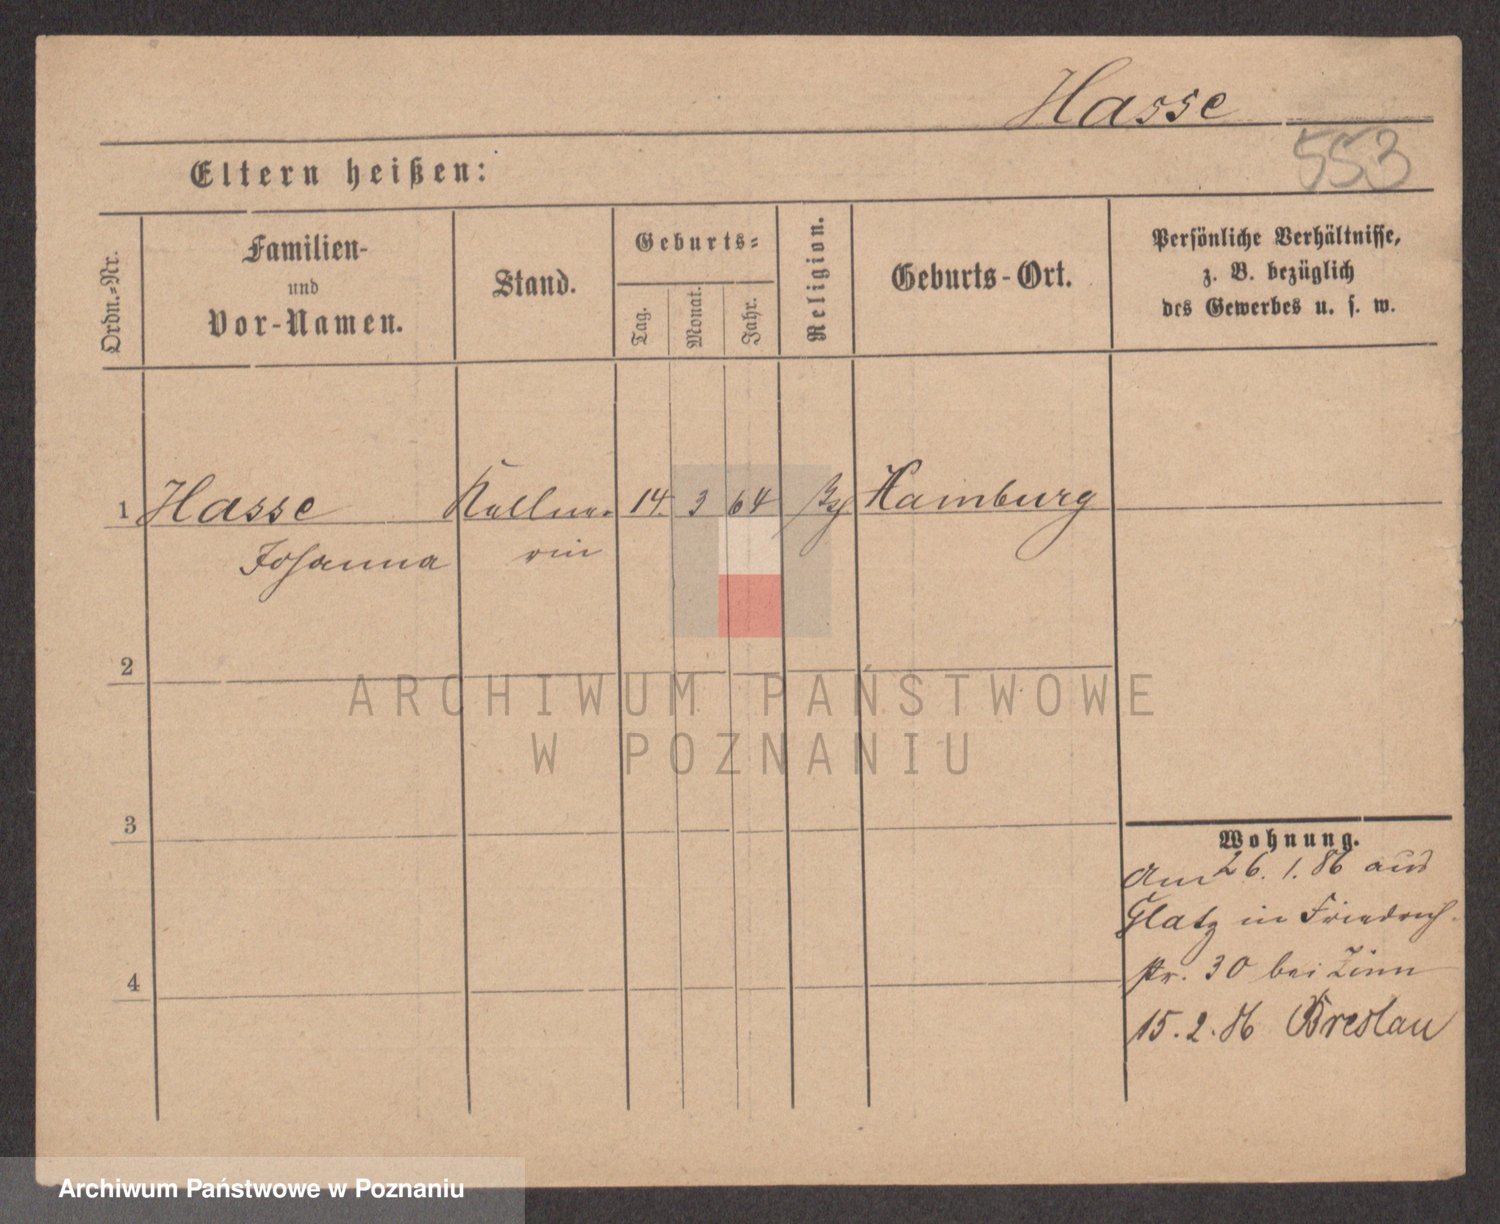 Hasse
553
Eltern heißen:
Ordn.-Nr.
Familien-
und
Vor-Namen.
Stand.
Geburts-
Tag.
Monat.
Jahr.
Religion.
Geburts-Ort.
Persönliche Verhältnisse,
z. B. bezüglich
des Gewerbes u. s. w.
1 Hasse Kellne- 14. 3 64 Hamburg
Johanna rin
2
3
4
Wohnung.
Am 26. 1. 86 aus
Glatz in Friedrich-
str. 30 bei Zinn
15. 2. 86 Breslau
ARCHIWUM PAŃSTWOWE
W POZNANIU
Archiwum Państwowe w Poznaniu